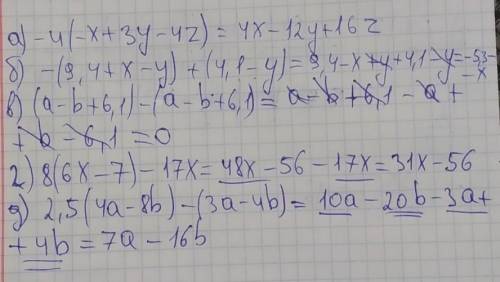 а) -4(-x+3y-4z) = 4x-12y+16z
б) -(9,4+x-y)+(4,1-y)=9,4-x+y+4,1-y=-5,3-
-x
в) (a-b+6,1)-(a-b+6,1)=a-b+6,1-a+
+b-6,1=0
г) 8(6x-7)-17x=48x-56-17x=31x-56
д) 2,5(4a-8b)-(3a-4b)=10a-20b-3a+
+4b=7a-16b